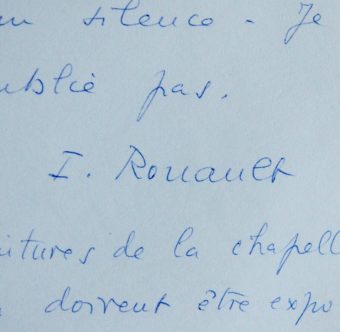 un silence - Je
ublie pas.
I. Rouault
itures de la chapell
doivent être expo